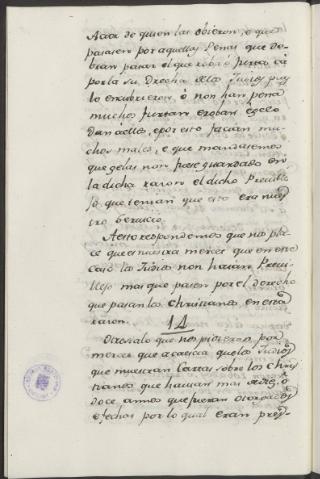 Actor de quien las obieron, e que
pasasen por aquellas Penas que de-
bran pasar el que robó ó furtó, cá
por la su Drecha dellos Judios pues
lo encubrieron, é non han pena
muchos furtan e roban e gelo
dan aellos, e por esto facian mu-
chos males, e que mandasemos
que gelas non fuese guardado en
la dicha razon el dicho Preville-
jo que tenian que esto era nues-
tro servicio.
Aesto respondemos que nos pla-
ce que es nuestra merced que en este
caso los Judios non hayan Previ-
llejo mas que pasen por el derecho
que pasan los christianos en esta
razon.
14
Otrosi alo que nos pidieron por
merced que acaesca que los Judios
que muestran Cartas sobre los chris
tianos que hayan mas de diez, ó
doce annos que fueran otorgadas
e fechas por lo qual eran prey-